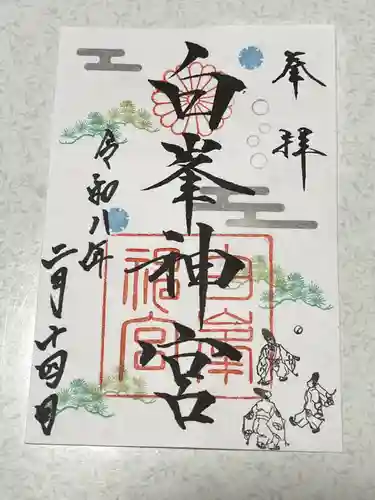 奉拝
白峯神宮
白峯神宮
令和八年
二月十四日